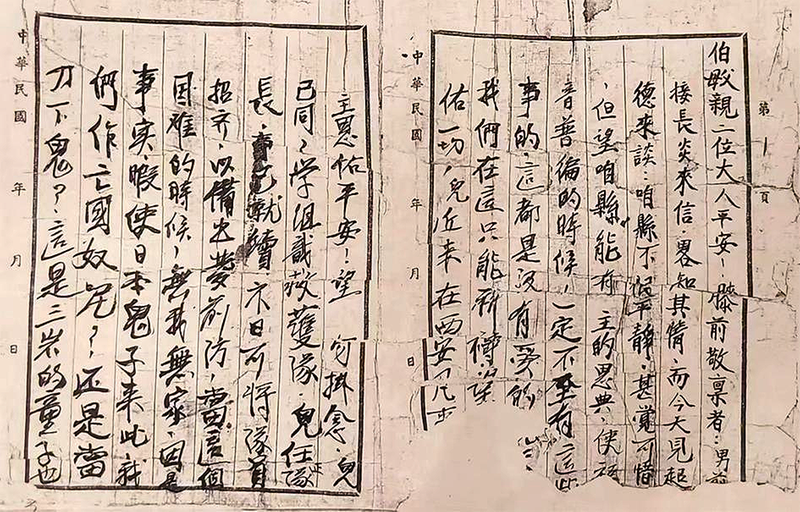 第 1 頁
伯敏親二位大人平安！膝前敬禀者：男前
接長炎來信畧知其情，而今天見起
德來談：咱縣不很平靜，甚覺可惜
，但望咱縣能 主的恩典，使福
音普徧的時候，一定不至有這些
事的，這都是沒有愛的
我們在這只能祈禱望
佑一切，兒近來在西安
中華民國 年 月 日
主恩佑平安！望 勿掛念，兒
已同同學組識救護隊，兒任正隊
長，就續，不日可將隊員
招齊，以備出發前防，當這個
困難的時候，無我無家，因是
事实，暇使日本鬼子来此，我
們作亡國奴呢？还是當
刀下鬼？這是三岩的童子也
中華民國 年 月 日